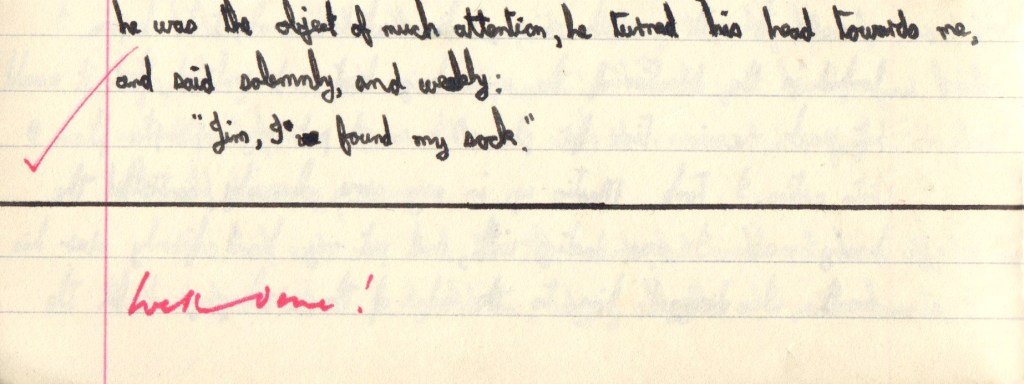 he was the object of much attention, he turned his head towards me,
and said solemnly, and weakly:
"Jim, I've found my sock."
Well done!